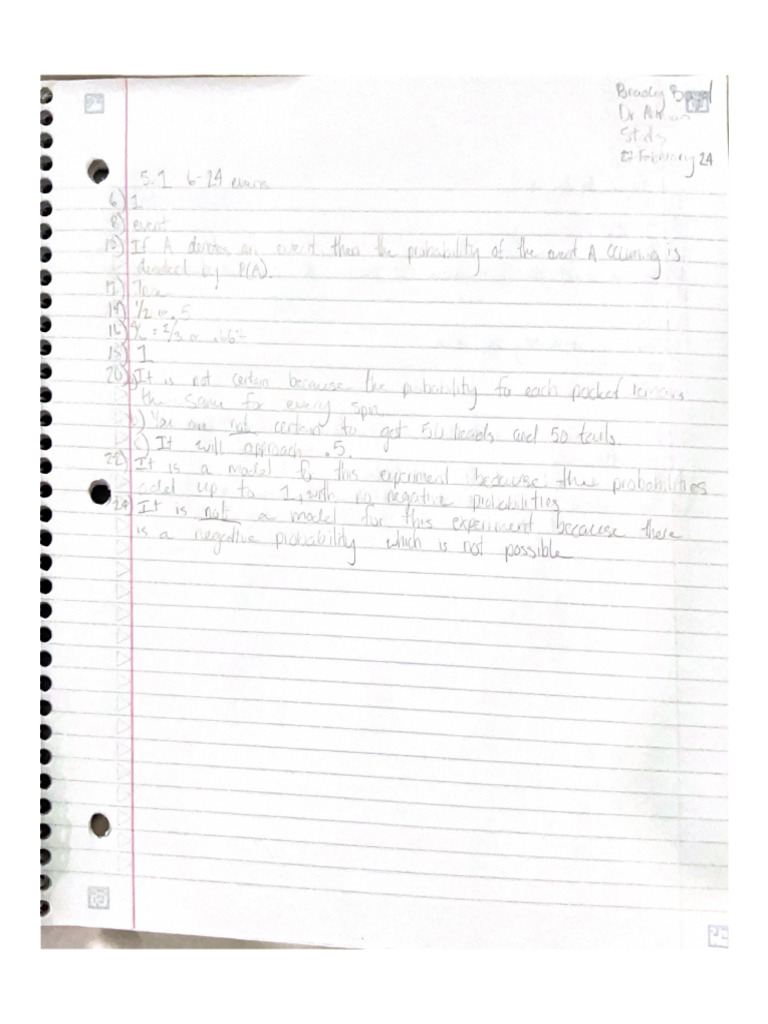 Bradley
Dr
Stats
February 24
5.1 6-24 evens
6) 1
8) event
10) If A denotes an event, then the probability of the event A occurring is
denoted by P(A).
12) True
14) 1/2 or .5
16) 4/6 = 2/3 or
18) 1
20) a) It is not certain because the probability for each pocket remains
the same for every spin
b) You are not certain to get 50 heads and 50 tails.
c) It will approach .5.
22) It is a model for this experiment because the probabilities
add up to 1, with no negative probabilities
24) It is not a model for this experiment because there
is a negative probability which is not possible